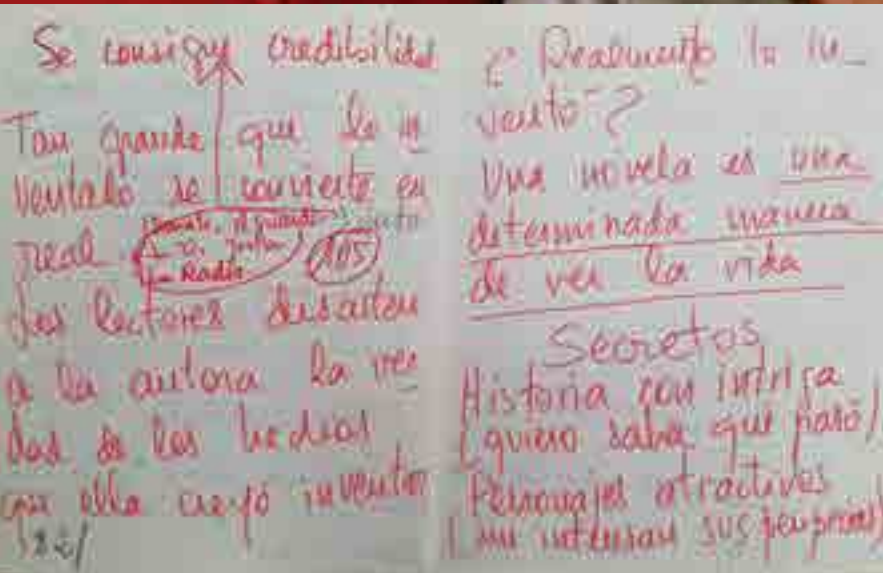 Se consigue credibilidad
Tan grande que lo in
ventado se convierte en
real
Radio
105
Los lectores
a la autora la ver
dad de los hechos
que ella creyó inventar
¿Realmente lo in_
ventó?
Una novela es una
determinada manera
de ver la vida
Secretos
Historia con intriga
(quiero saber qué pasó)
Personajes atractivos
(me interesan sus peripecias)